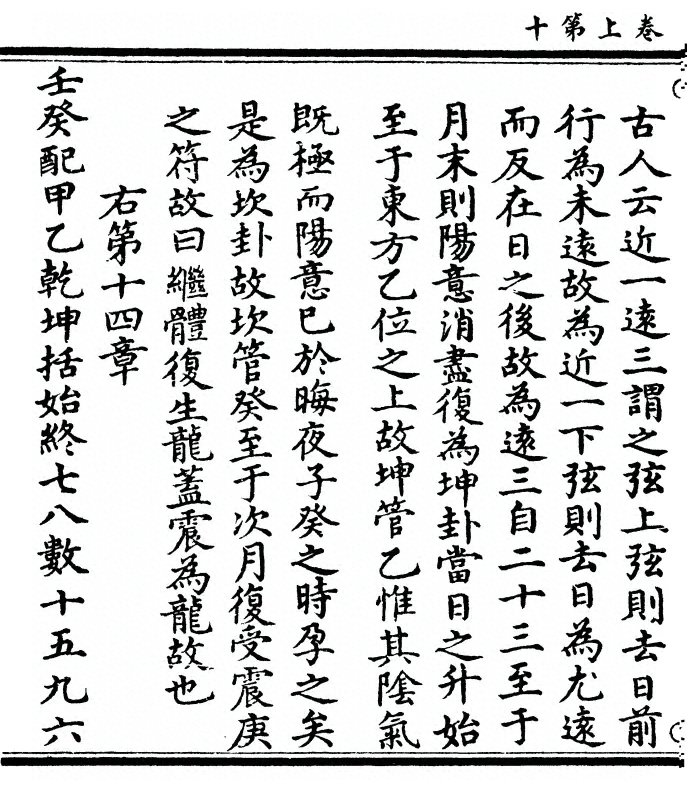 卷上第十
古人云近一遠三謂之弦上弦則去日前
行為未遠故為近一下弦則去日為尤遠
而反在日之後故為遠三自二十三至于
月末則陽意消盡復為坤卦當日之升始
至于東方乙位之上故坤管乙惟其陰氣
既極而陽意已於晦夜子癸之時孕之矣
是為坎卦故坎管癸至于次月復受震庚
之符故曰繼體復生龍蓋震為龍故也
右第十四章
壬癸配甲乙乾坤括始終七八數十五九六